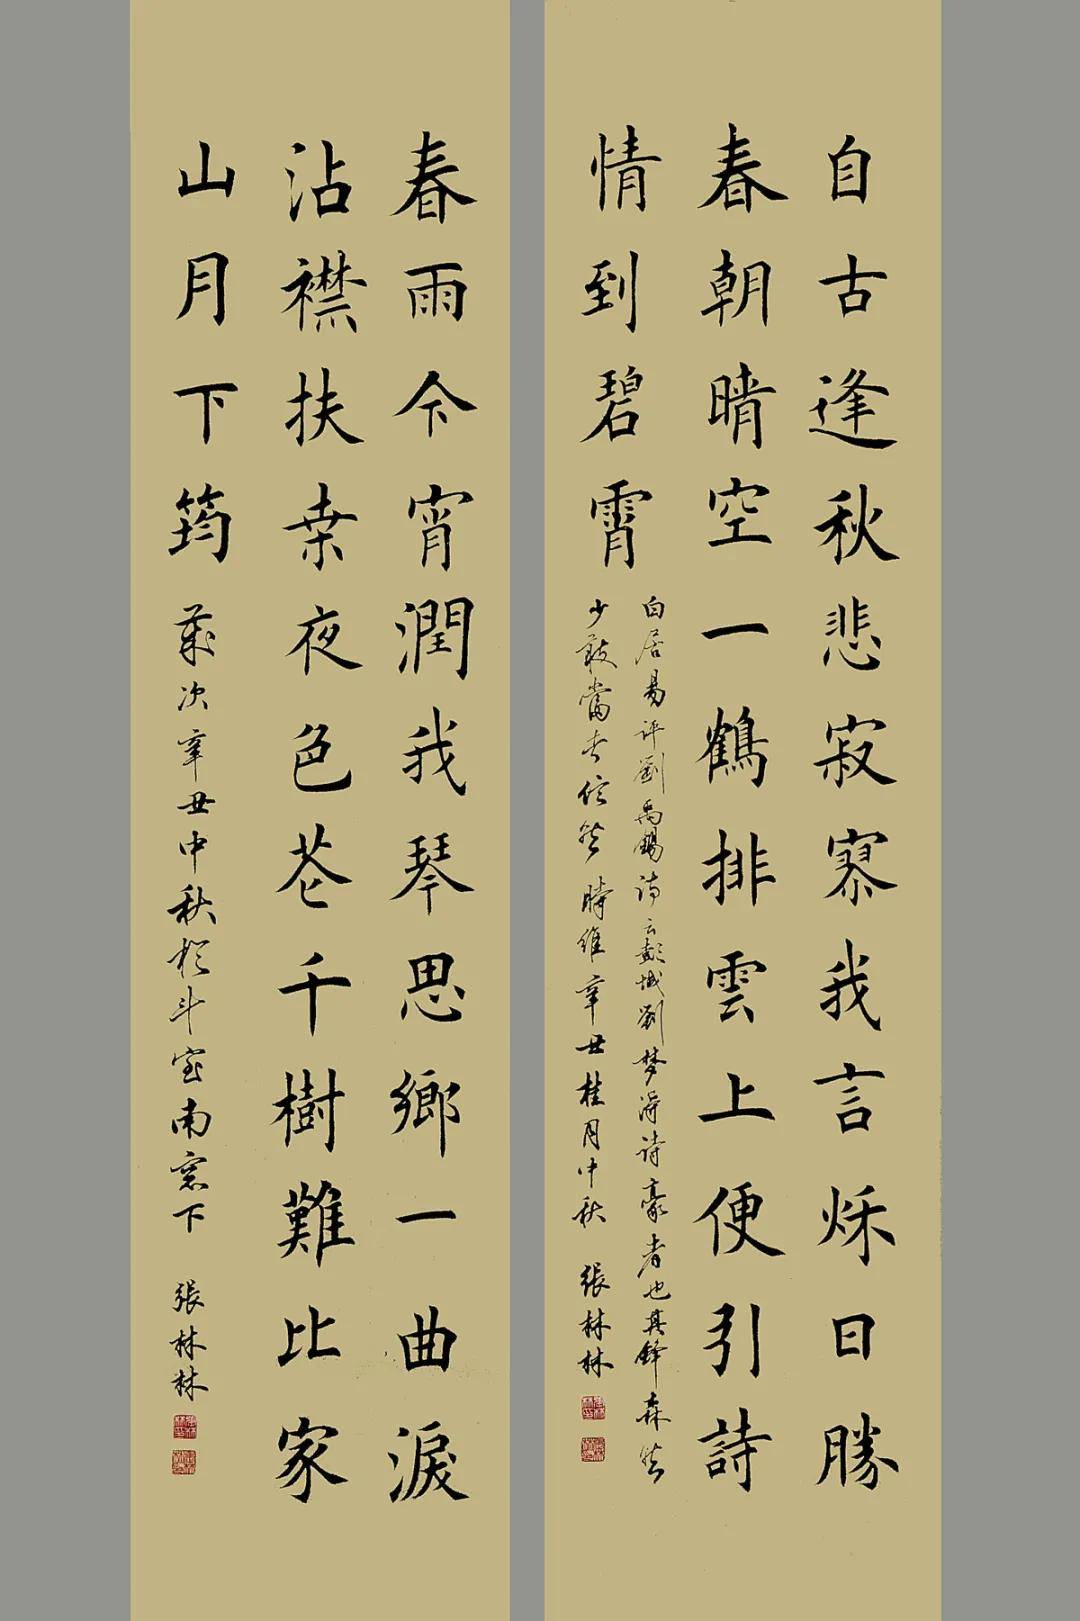 自古逢秋悲寂寥我言秌日勝
春朝晴空一鶴排雲上便引詩
情到碧霄
白居易评劉禹錫诗云彭城劉梦得诗豪者也其鋒森然
少敢當者信然 時維辛丑桂月中秋 張林林
春雨今宵潤我琴思鄉一曲淚
沾襟扶桒夜色茫千樹難比家
山月下筠
歲次辛丑中秋於斗室南窓下 張林林